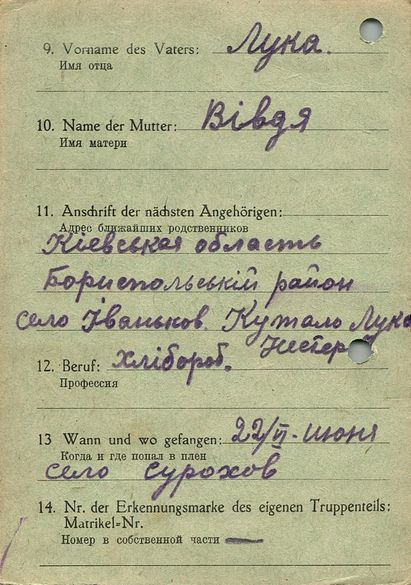 9. Vorname des Vaters: Лука.
Имя отца
10. Name der Mutter: Вівдя
Имя матери
11. Anschrift der nächsten Angehörigen:
Адрес ближайших родственников
Кіевская область
Бориспольській район
село Іваньков. Кутало Лука
Нестер
12. Beruf: хлібороб.
Профессия
13 Wann und wo gefangen: 22/VI - июня
Когда и где попал в плен
село Сурохов
14. Nr. der Erkennungsmarke des eigenen Truppenteils:
Matrikel=Nr.
Номер в собственной части —